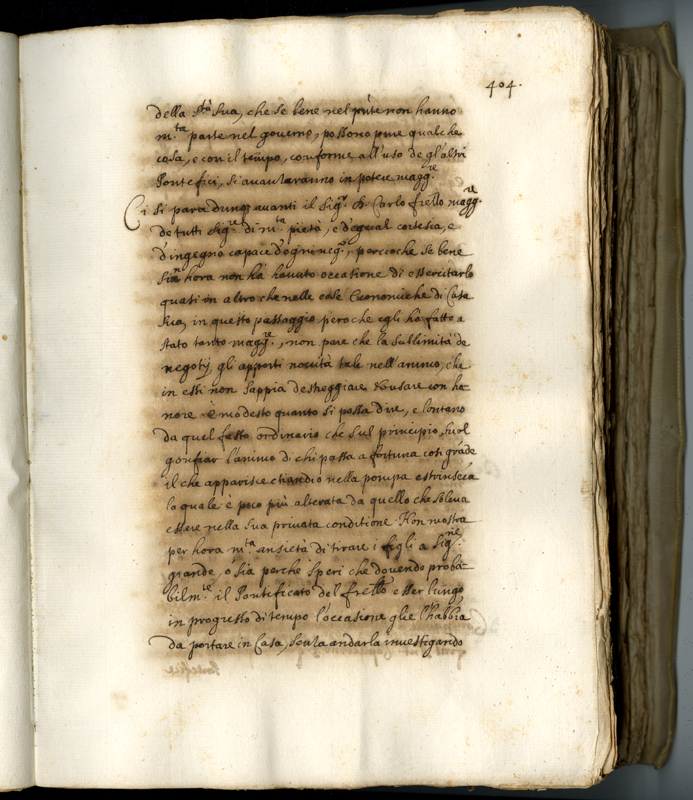 404.
della S.tà Sua, che se bene nel pñte non hanno
m.ta parte nel governo, possono pure qualche
cosa, e con il tempo, conforme all'uso de gl'altri
Pontefici, si avanzaranno in potere magg.re
Ci si para dunq avanti il Sig.r D. Carlo frello magg.re
de tutti Sig.re di m.ta pietà, e d'egual cortesia, e
d'ingegno capace d'ogni neg.o, percioche se bene
sin hora non ha havuto occasione di essercitarlo
quasi in altro che nelle cose Economiche di Casa
Sua, in questo passaggio però che egli ha fatto a
stato tanto magg.re, non pare che la sublimità de
negotij gli apporti novità tale nell'animo, che
in essi non sappia destreggiare et usare con ho-
nore è modesto quanto si possa dire, e lontano
da quel fasto ordinario che sul principio suol
gonfiar l'animo di chi passa a fortuna così grãde
il che apparisce etiandio nella pompa estrinseca
la quale è poco più alterata da quello che soleva
essere nella sua privata conditione. Non mostra
per hora m.ta ansietà di tirare i figli a Sig.rie
grande, ò sia perche speri che dovendo proba-
bilm.te il Pontificato del frello esser lungo
in progresso di tempo l'occasione glie l'habbia
da portare in Casa, senza andarla investigando